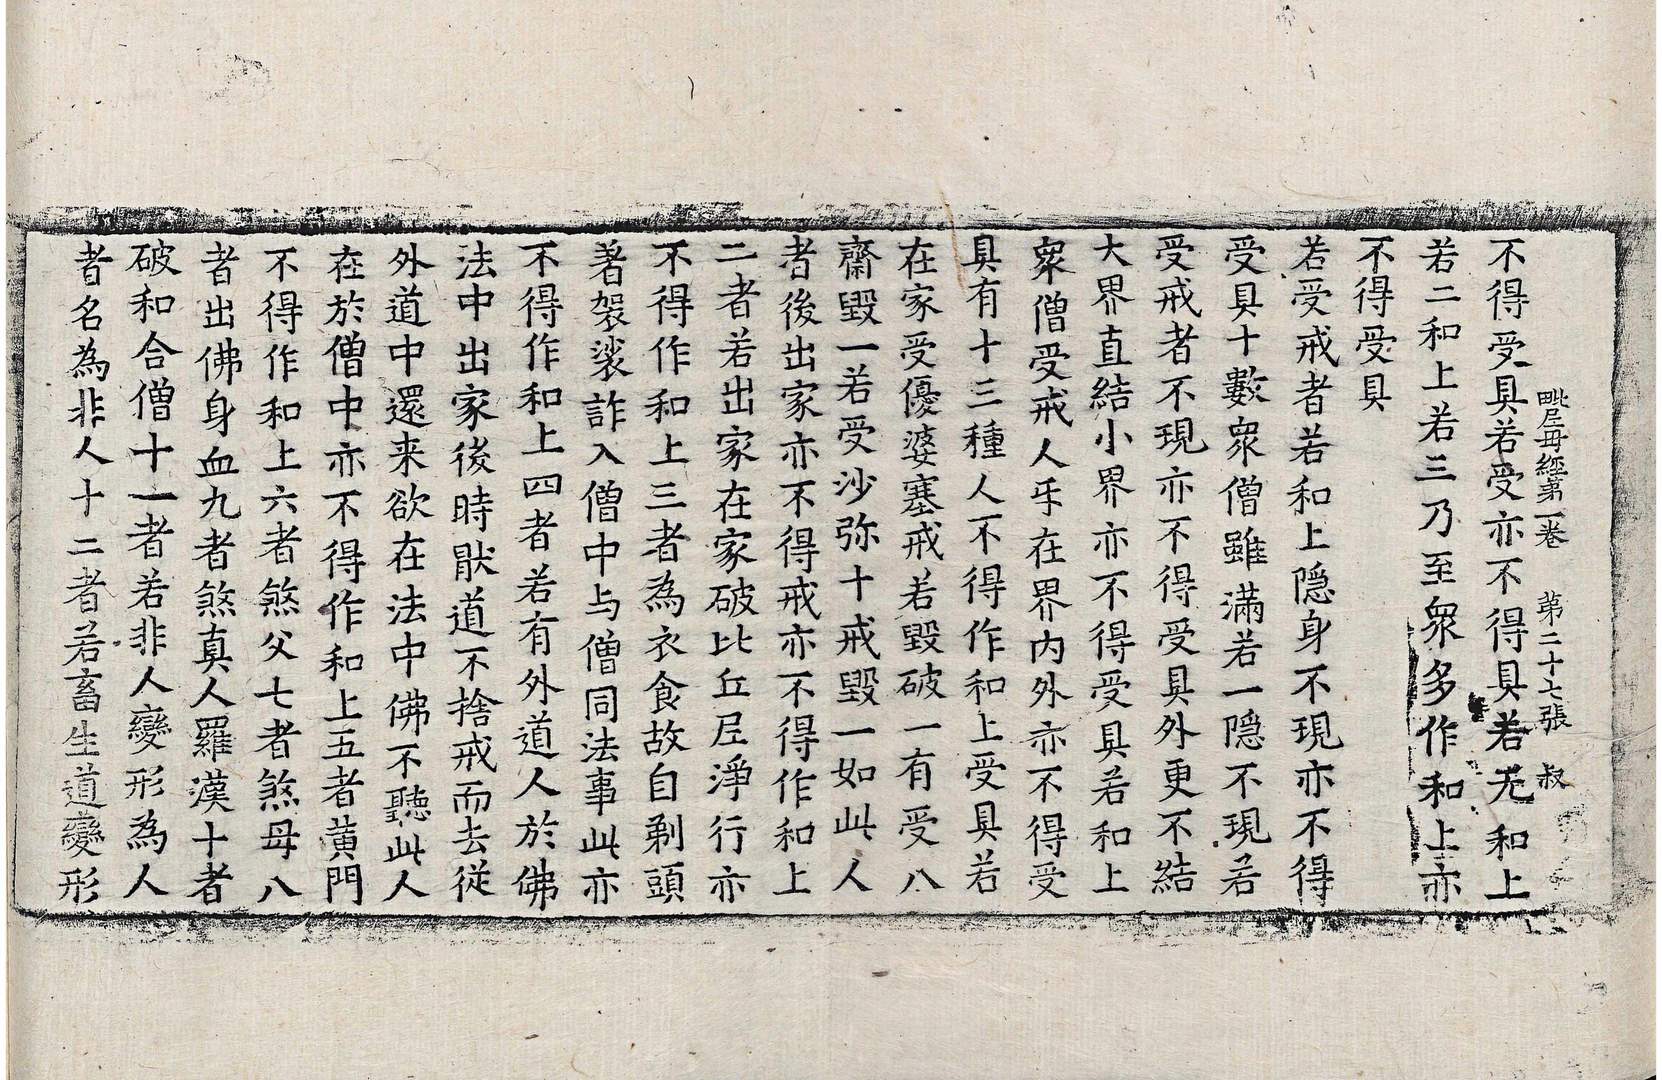 毗尼母經第一卷　第二十七張　叔
不得受具若受亦不得具若无和上
若二和上若三乃至衆多作和上亦
不得受具
若受戒者若和上隱身不現亦不得
受具十數衆僧雖滿若一隱不現若
受戒者不現亦不得受具外更不結
大界直結小界亦不得受具若和上
衆僧受戒人乎在界內外亦不得受
具有十三種人不得作和上受具若
在家受優婆塞戒若毀破一有受八
齋毀一若受沙弥十戒毀一如此人
者後出家亦不得戒亦不得作和上
二者若出家在家破比丘尼淨行亦
不得作和上三者為衣食故自剃頭
著袈裟詐入僧中与僧同法事此亦
不得作和上四者若有外道人於佛
法中出家後時猒道不捨戒而去從
外道中還来欲在法中佛不聽此人
在於僧中亦不得作和上五者黄門
不得作和上六者煞父七者煞母八
者出佛身血九者煞真人羅漢十者
破和合僧十一者若非人變形為人
者名為非人十二者若畜生道變形